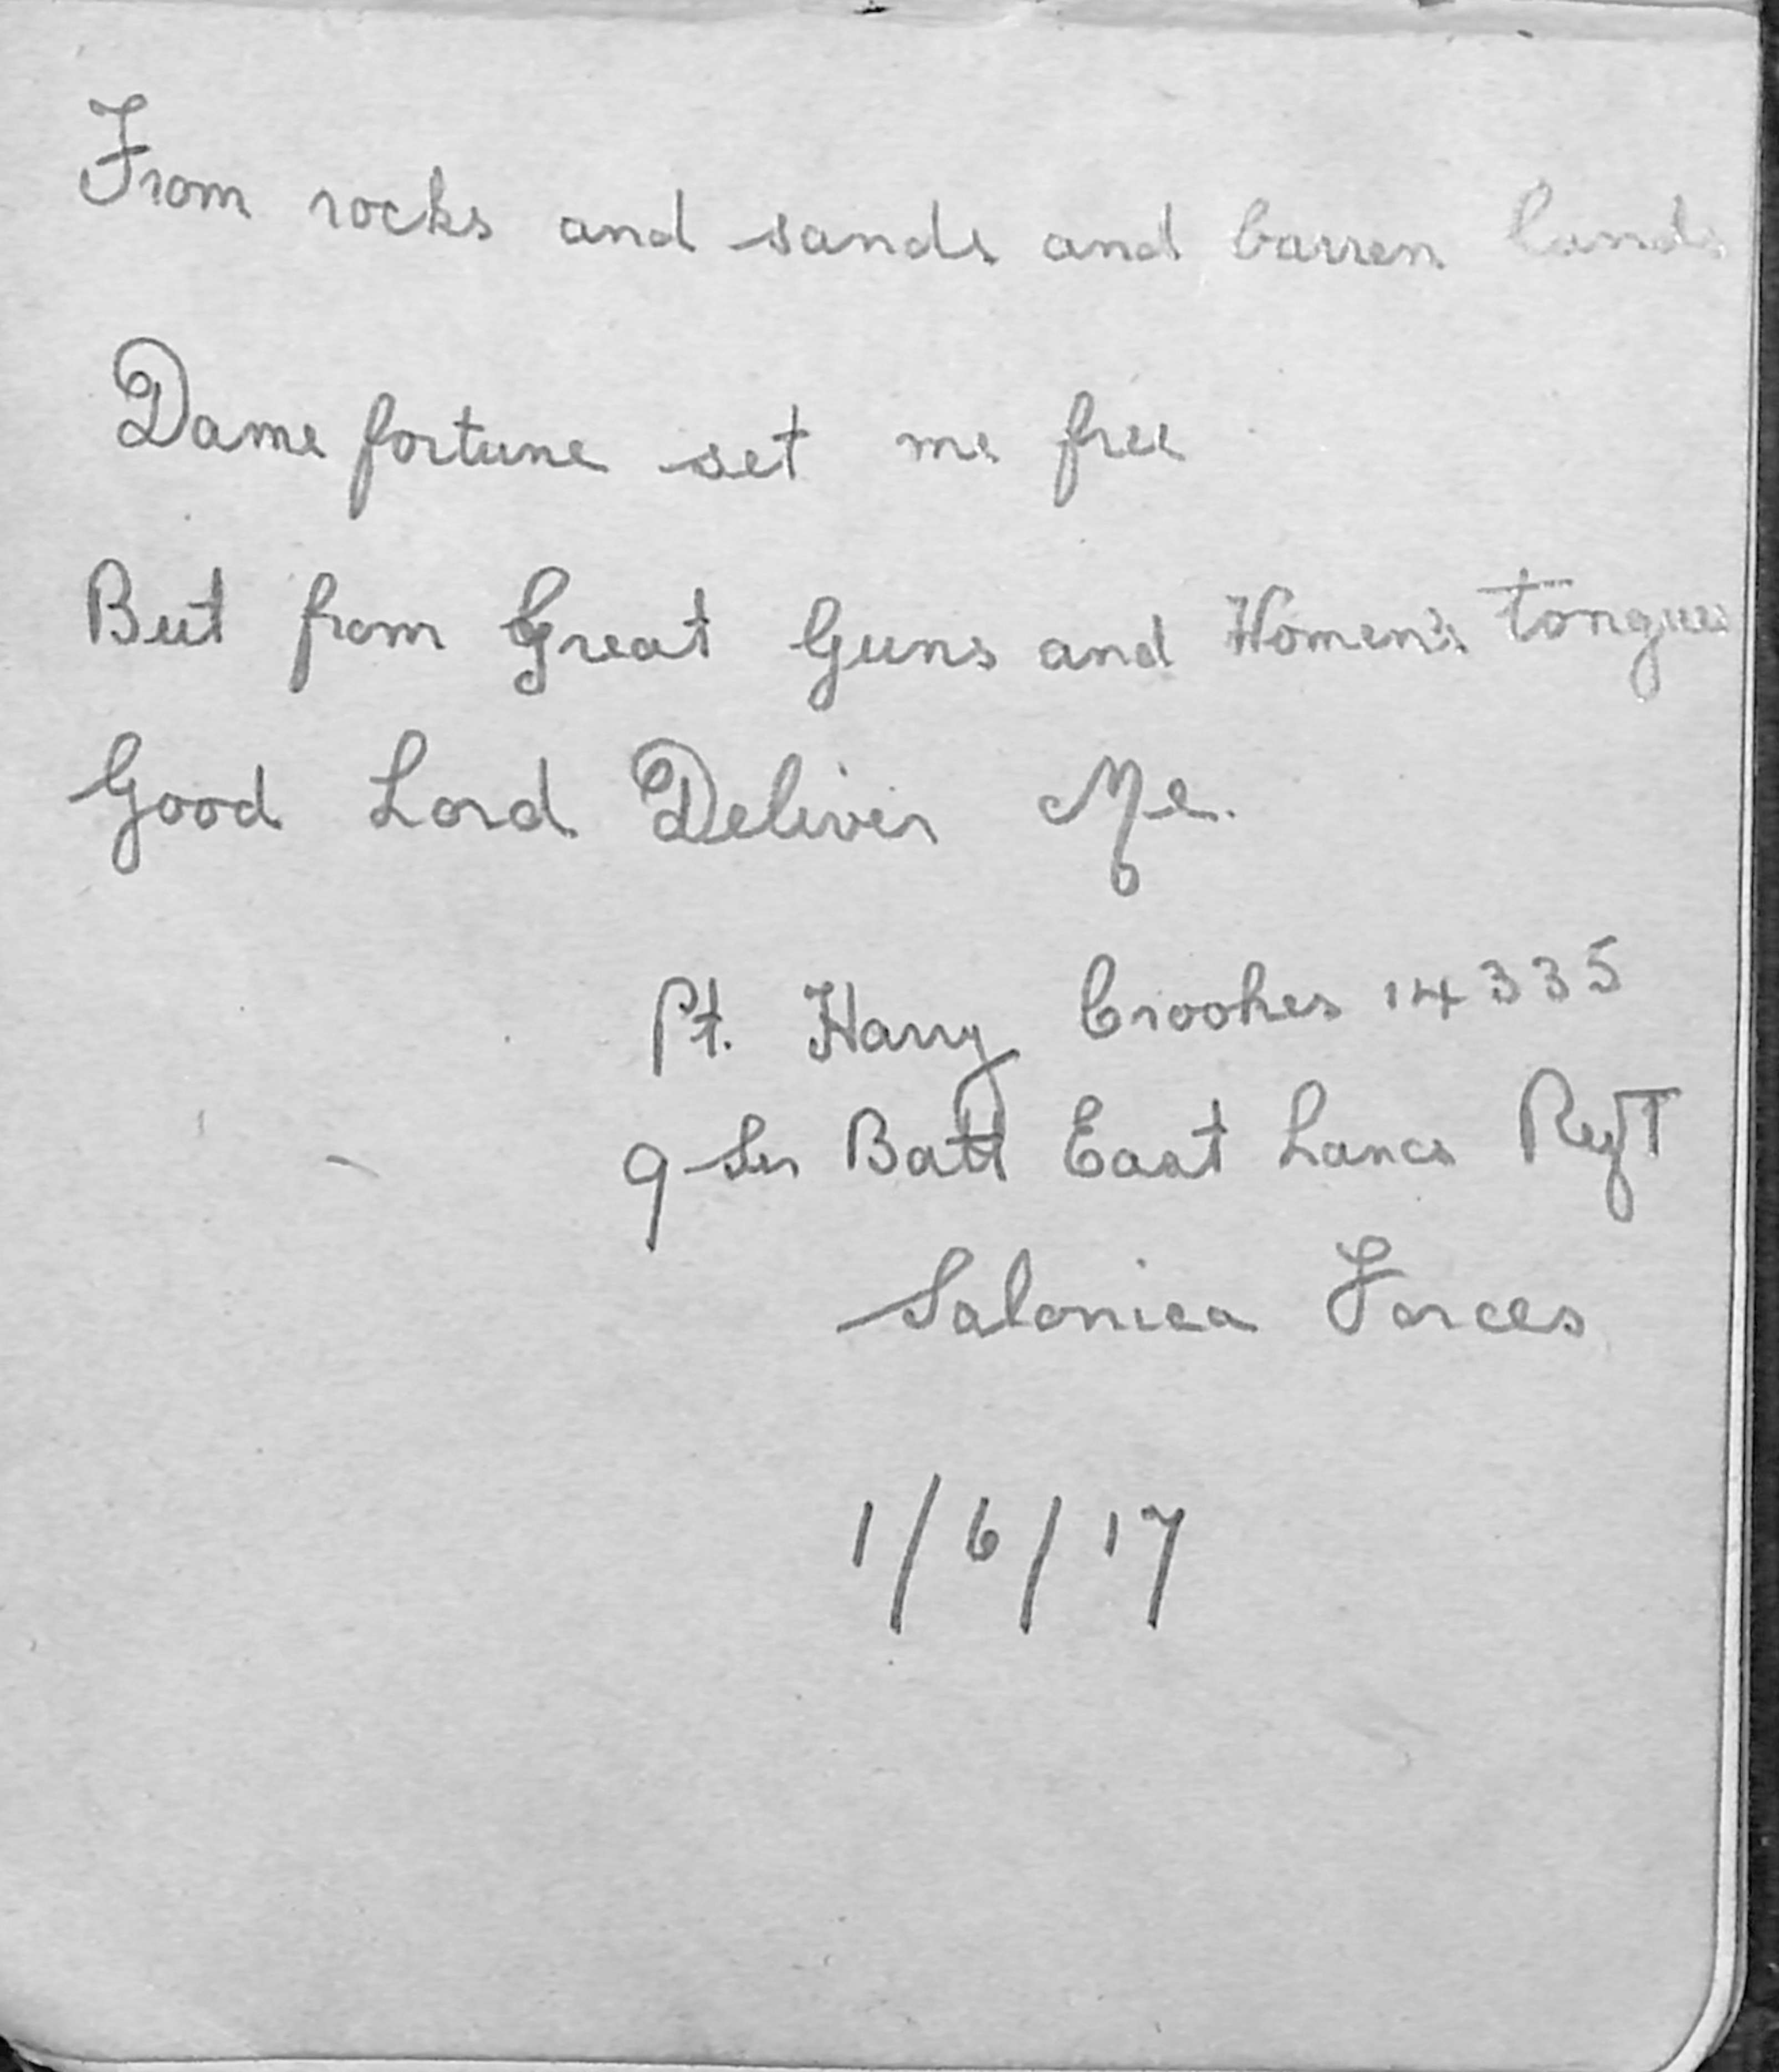 From rocks and sands and barren lands
Dame fortune set me free
But from Great Guns and Women's tongues
Good Lord Deliver Me.
Pt. Harry Crookes 14335
9 Ser Batt East Lancs Regt
Salonica Forces
1/6/17